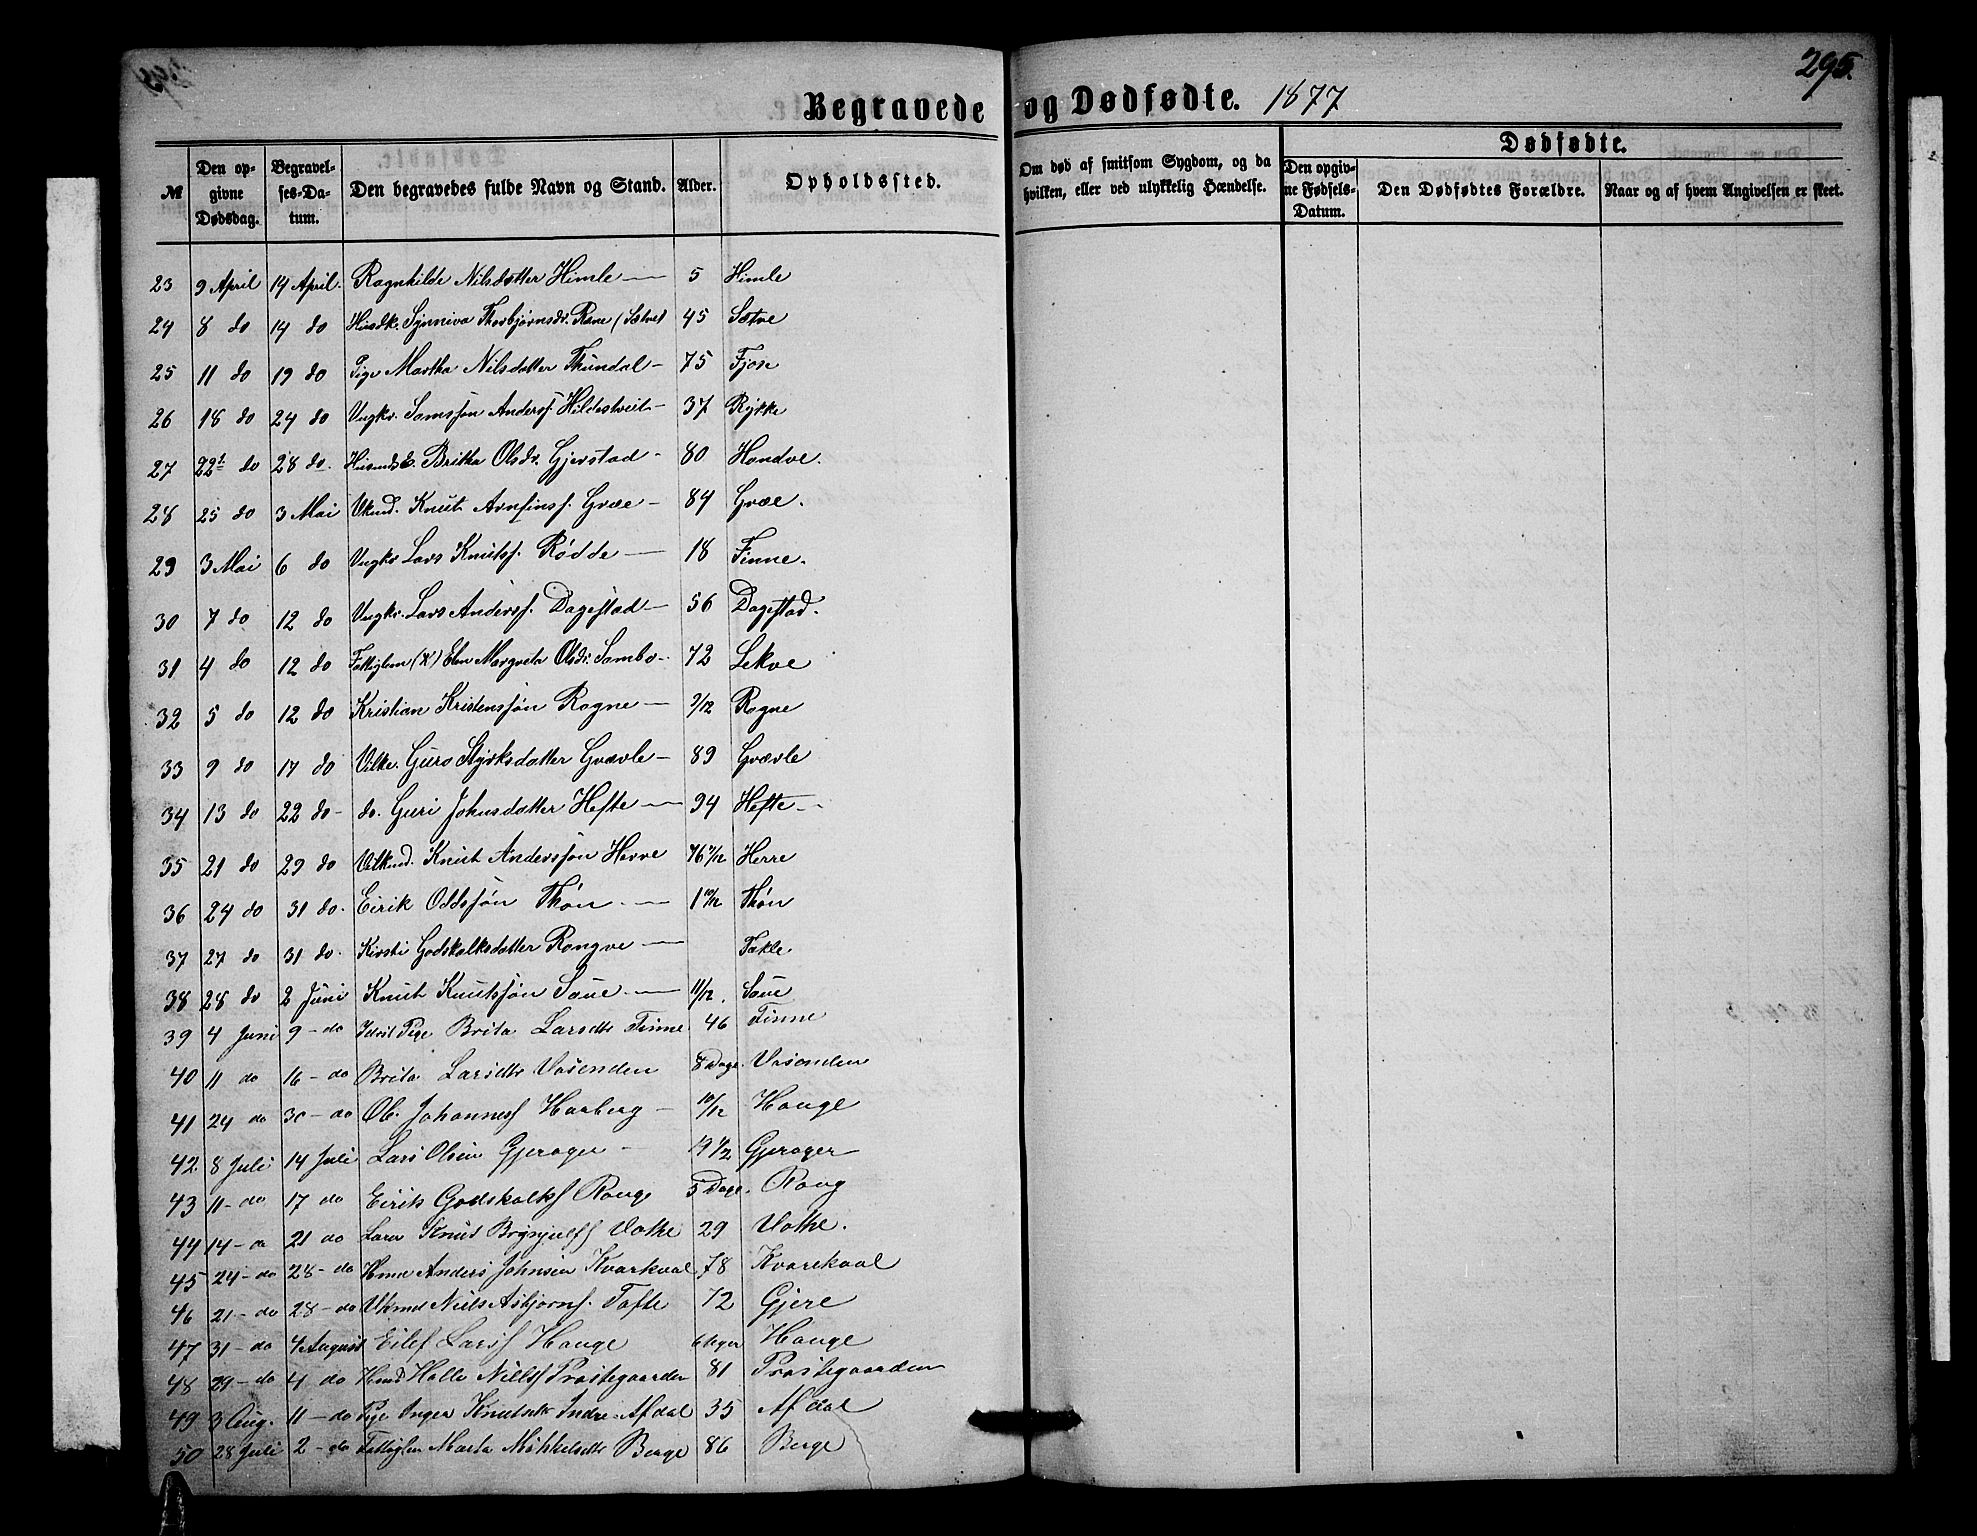 295.
Begravede og Dødfødte. 1877
Dødfødte.
№ Den opgivne Dødsdag. Begravelses-Datum. Den begravedes fulde Navn og Stand. Alder. Opholdssted. Om død af smitsom Sygdom, og da hvilken, eller ved ulykkelig Hændelse. Den opgivne Fødsels-Datum. Den Dødfødtes Forældre. Naar og af hvem Angivelsen er skeet.
23 9 April 14 April. Ragnhilde Nilsdatter Himle — 5 Himle
24 8 do 14 do Husdk. Synneva Thorbjørnsdr. Rene (Sætve) 45 Sætve
25 11 do 19 do Pige Martha Nilsdatter Thundal - 75 Fjose
26 18 do 24 do Ungkr. Samsson Anders. Hildestveit - 37 Rykke
27 22 do 28 do. Britha Olsdr. Gjerstad - 80 Handve.
28 25 do 3 Mai Knut Arnfinss. Græe - 84 Græe.
29 3 Mai 6 do Ungkr Lars Knutss. Rødde — 18 Finne.
30 7 do 12 do Ungkr. Lars Anderss. Dagestad — 56 Dagestad.
31 4 do 12 do Fattiglem (X) Elen Margreta Olsdr. Sambo - 72 Lekve
32 5 do 12 do Kristian Kristenssøn Rogne — /12 Rogne
33 9 do 17 do Guro Styrksdatter Grævle — 89 Grævle
34 13 do 22 do - do. Guri Johnsdatter Hefte — 94 Hefte —
35 21 do 29 do Knut Anderssøn Herre 76 /12 Herre
36 24 do 31 do. Eirik Oddssøn Thøn. — 1 10/12 Thøn
37 27 do 31 do. Kirsti Godskalksdatter Rongve — Takle
38 28 do 2 Juni Knut Knutssøn Saue. — 11/12. Saue
39 4 Juni 9 - do Pige Brita Larsdtr Finne 46 Finne
40 11 do 16 - do Brita Larsdtr Vasenden 8 Dage. Vasenden
41 24 do 30 - do Ole Johanness Haaberg - 10/12 Hauge
42 8 Juli 14 Juli Lars Olsen Gjerager - 19 1/2 Gjerager
43 11 - do 17 do Eirik Godskalks Ronge 5 Dage. Rong
44 14 - do 21 do Knut Brynjulfs Vathe 29 Vathe.
45 24 - do 28 - do Hmd Anders Johnsen Kvarkval 78 Kvarekval
46 21 - do 28 - do Nils Asbjørns. Tofte 72 Gjere
47 31 - do 4 August Eilef Larss Hauge Hauge
48 29 - do 4 do Hmd Halle Niels Præstegaarden 81 Præstegaarden
49 3 Aug. 11 - do Pige Inger Knutsdtr Indre-Afdal 35 Afdal
50 28 Juli 2 - do Fattiglem Marta Mikkelsdtr Berge 86 Berge